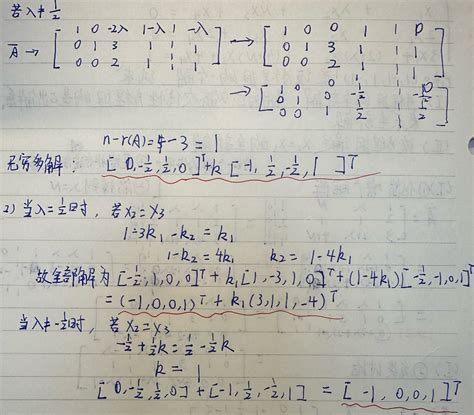 若λ≠½
Ā → [ 1 0 -2λ 1-λ | -λ ] → [ 1 0 0 1 | 0 ]
[ 0 1 3 1 | 1 ] [ 0 1 3 1 | 1 ]
[ 0 0 2 1 | 1 ] [ 0 0 2 1 | 1 ]
→ [ 1 0 0 1
0 1 0 -½ | -½
0 0 1 ½ | ½ ]
n-r(A)=4-3=1
无穷多解: [0,-½,½,0]ᵀ+k[-1,½,-½,1]ᵀ
2) 当λ=½时, 若x₂=x₃
1-3k₁-k₂=k₁
1-k₂=4k₁ k₂=1-4k₁
故全部解为[-½,1,0,0]ᵀ+k₁[1,-3,1,0]ᵀ+(1-4k₁)[-½,-1,0,1]ᵀ
=(-1,0,0,1)ᵀ+k₁(3,1,1,-4)ᵀ
当λ≠-½时, 若x₂=x₃
-½+½k=½-½k
k=1
[0,-½,½,0]+[-1,½,-½,1] = [-1,0,0,1]ᵀ